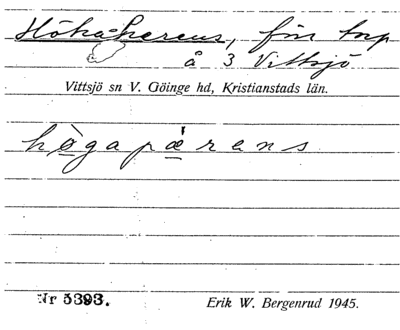 Hökaperens, förr torp
å 3 Vittsjö
Vittsjö sn V. Göinge hd, Kristianstads län.
hògapæ̀rens
Nr 5393. Erik W. Bergenrud 1945.